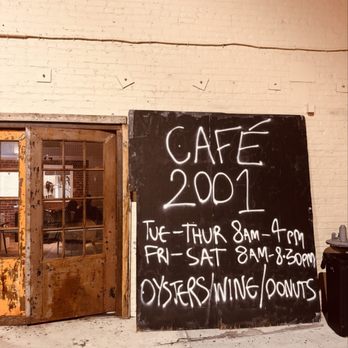 CAFÉ
2001
TUE-THUR 8AM-4PM
FRI-SAT 8AM-8:30PM
OYSTERS/WINE/DONUTS